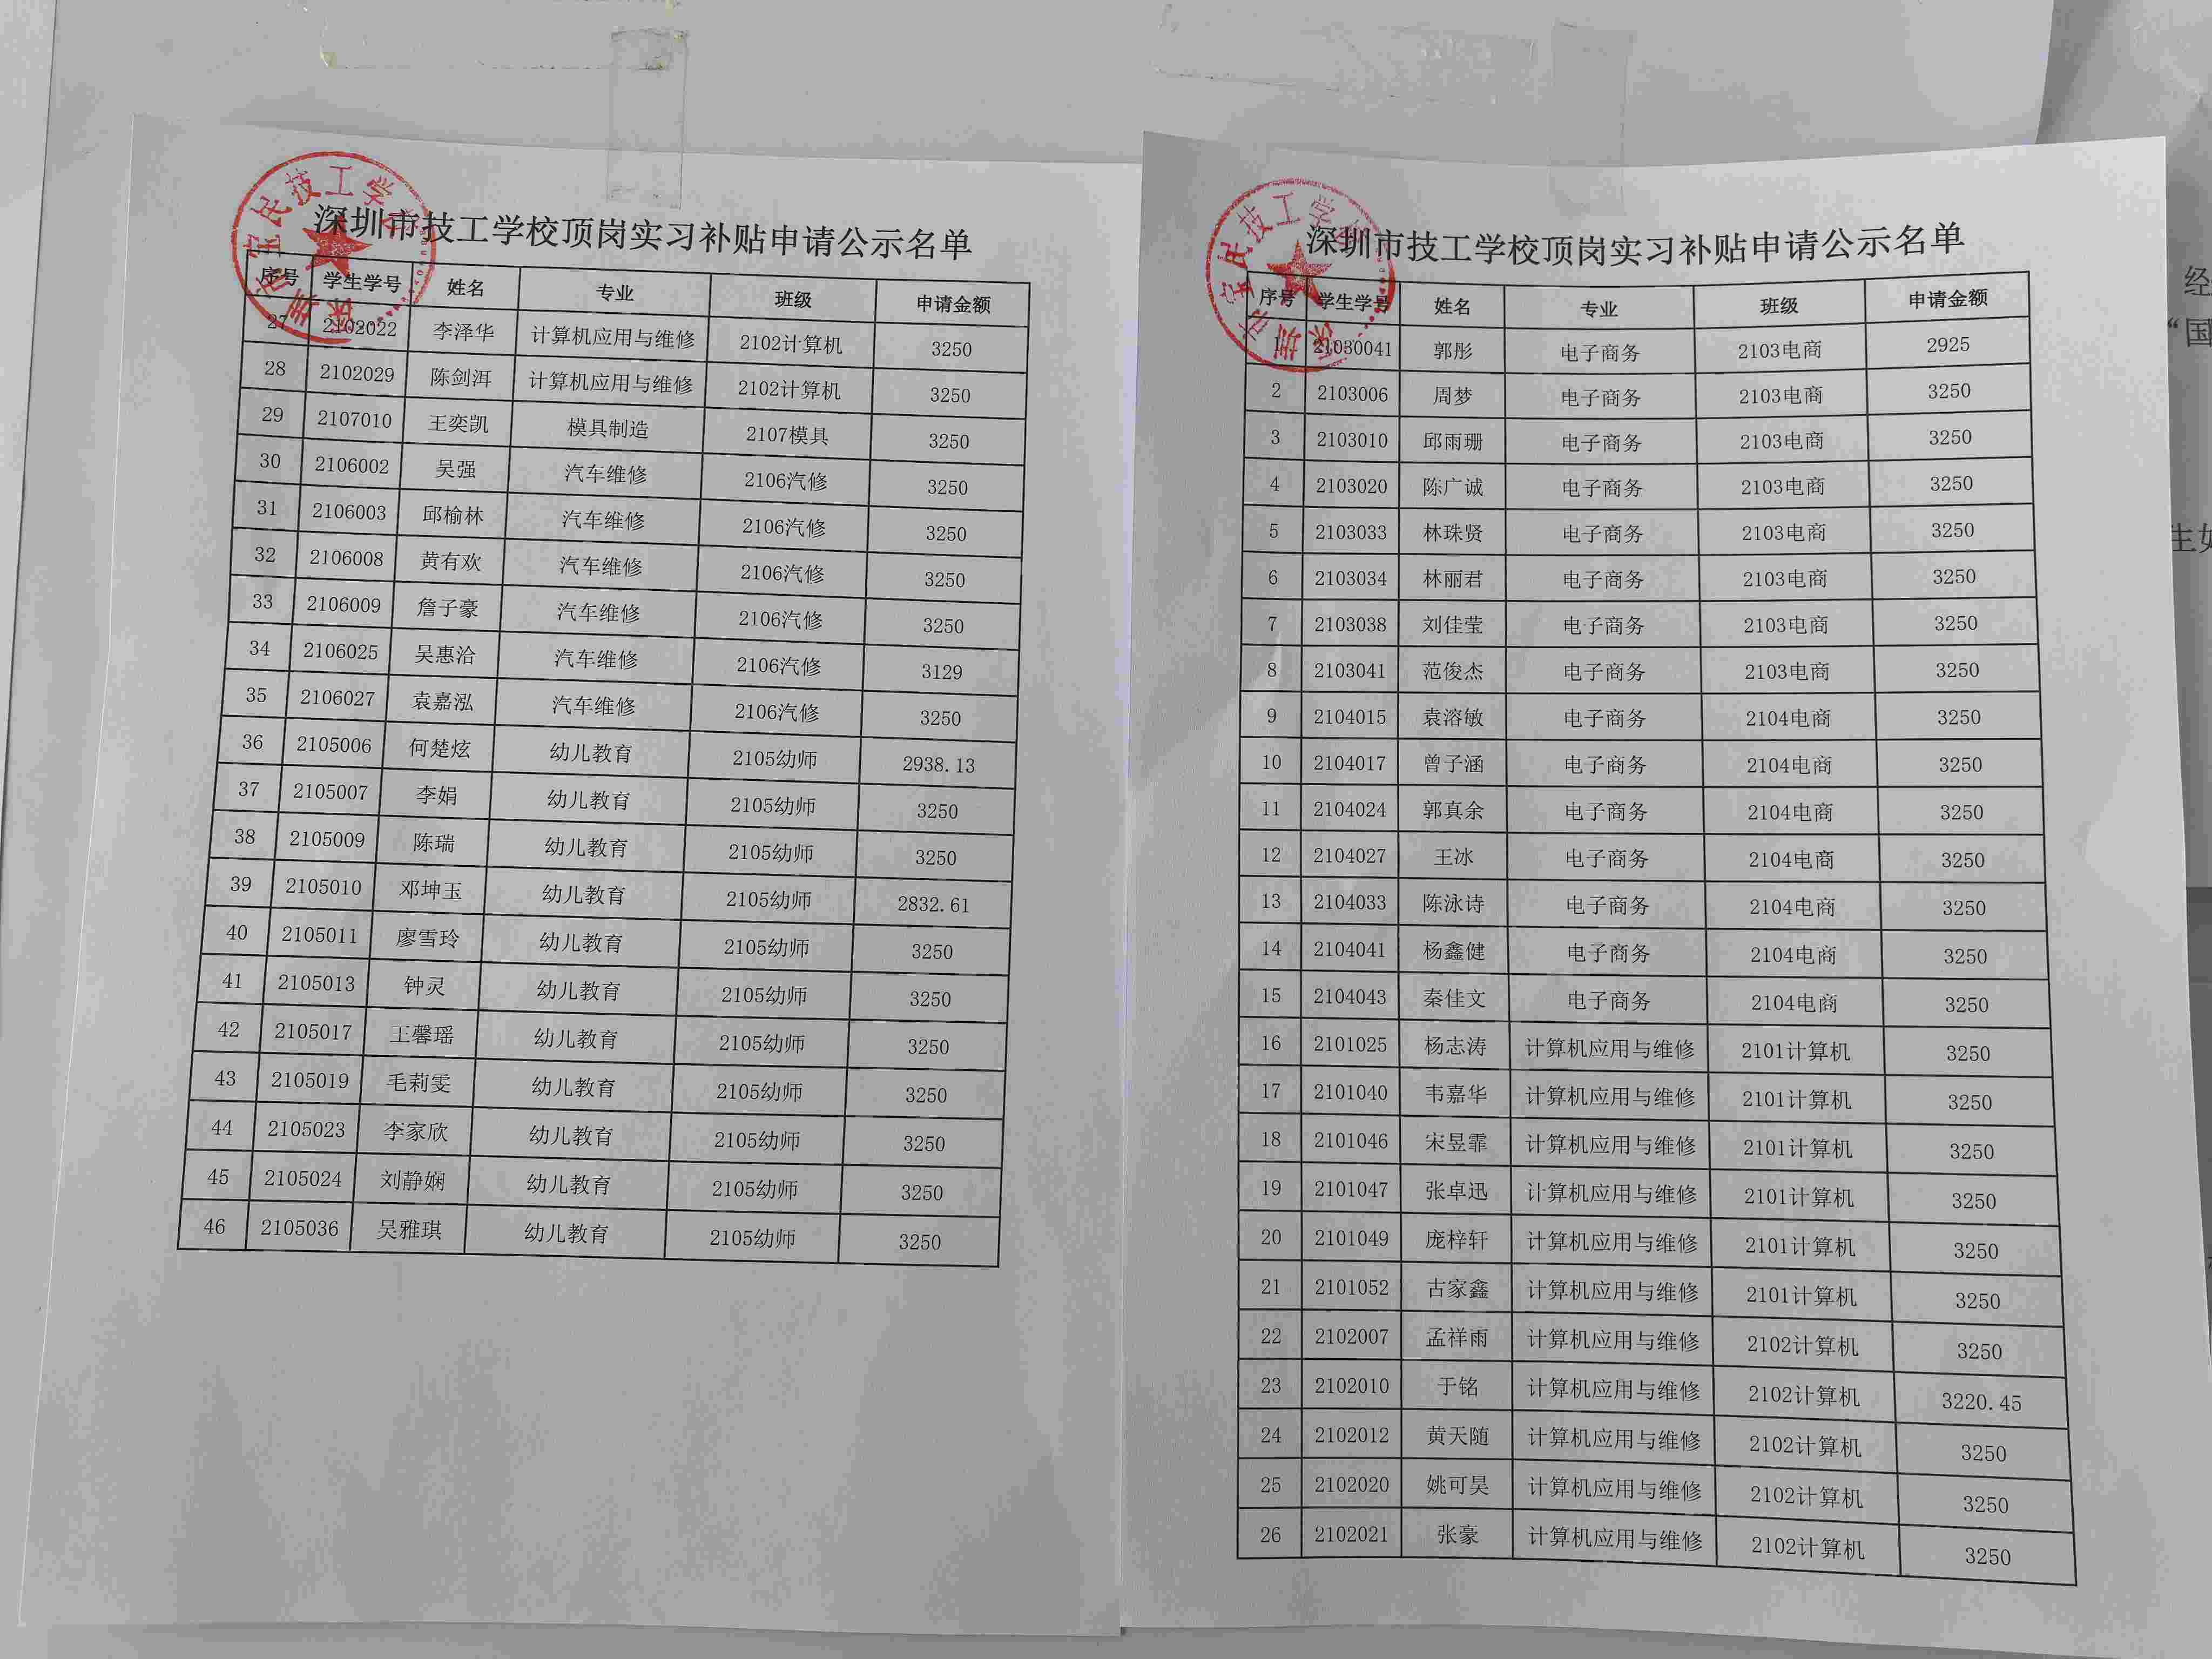 深圳市技工学校顶岗实习补贴申请公示名单
序号 学生学号 姓名 专业 班级 申请金额
27 2102022 李泽华 计算机应用与维修 2102计算机 3250
28 2102029 陈剑洱 计算机应用与维修 2102计算机 3250
29 2107010 王奕凯 模具制造 2107模具 3250
30 2106002 吴强 汽车维修 2106汽修 3250
31 2106003 邱榆林 汽车维修 2106汽修 3250
32 2106008 黄有欢 汽车维修 2106汽修 3250
33 2106009 詹子豪 汽车维修 2106汽修 3250
34 2106025 吴惠洽 汽车维修 2106汽修 3129
35 2106027 袁嘉泓 汽车维修 2106汽修 3250
36 2105006 何楚炫 幼儿教育 2105幼师 2938.13
37 2105007 李娟 幼儿教育 2105幼师 3250
38 2105009 陈瑞 幼儿教育 2105幼师 3250
39 2105010 邓坤玉 幼儿教育 2105幼师 2832.61
40 2105011 廖雪玲 幼儿教育 2105幼师 3250
41 2105013 钟灵 幼儿教育 2105幼师 3250
42 2105017 王馨瑶 幼儿教育 2105幼师 3250
43 2105019 毛莉雯 幼儿教育 2105幼师 3250
44 2105023 李家欣 幼儿教育 2105幼师 3250
45 2105024 刘静娴 幼儿教育 2105幼师 3250
46 2105036 吴雅琪 幼儿教育 2105幼师 3250
深圳市宝民技工学校
深圳市技工学校顶岗实习补贴申请公示名单
序号 学生学号 姓名 专业 班级 申请金额
1 21030041 郭彤 电子商务 2103电商 2925
2 2103006 周梦 电子商务 2103电商 3250
3 2103010 邱雨珊 电子商务 2103电商 3250
4 2103020 陈广诚 电子商务 2103电商 3250
5 2103033 林珠贤 电子商务 2103电商 3250
6 2103034 林丽君 电子商务 2103电商 3250
7 2103038 刘佳莹 电子商务 2103电商 3250
8 2103041 范俊杰 电子商务 2103电商 3250
9 2104015 袁溶敏 电子商务 2104电商 3250
10 2104017 曾子涵 电子商务 2104电商 3250
11 2104024 郭真余 电子商务 2104电商 3250
12 2104027 王冰 电子商务 2104电商 3250
13 2104033 陈泳诗 电子商务 2104电商 3250
14 2104041 杨鑫健 电子商务 2104电商 3250
15 2104043 秦佳文 电子商务 2104电商 3250
16 2101025 杨志涛 计算机应用与维修 2101计算机 3250
17 2101040 韦嘉华 计算机应用与维修 2101计算机 3250
18 2101046 宋昱霏 计算机应用与维修 2101计算机 3250
19 2101047 张卓迅 计算机应用与维修 2101计算机 3250
20 2101049 庞梓轩 计算机应用与维修 2101计算机 3250
21 2101052 古家鑫 计算机应用与维修 2101计算机 3250
22 2102007 孟祥雨 计算机应用与维修 2102计算机 3250
23 2102010 于铭 计算机应用与维修 2102计算机 3220.45
24 2102012 黄天随 计算机应用与维修 2102计算机 3250
25 2102020 姚可昊 计算机应用与维修 2102计算机 3250
26 2102021 张豪 计算机应用与维修 2102计算机 3250
深圳市宝民技工学校
经
“国
生如